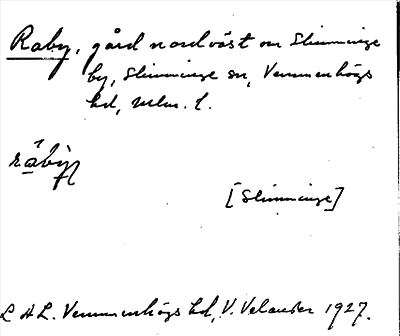 Raby, gård nordväst om Slimminge
by, Slimminge sn, Vemmenhögs
hd, Mlm. l.
råby
[Slimminge]
L A L. Vemmenhögs hd, V. Velander 1927.